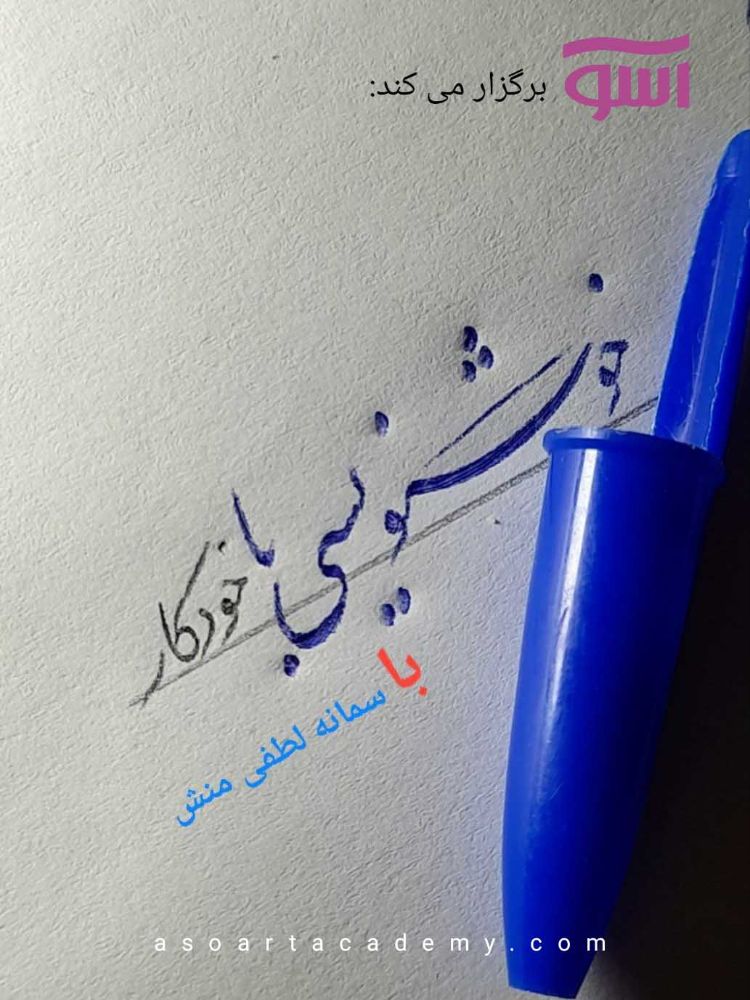 آسو برگزار می کند:
خوشنویسی با خودکار
با سمانه لطفی منش
asoartacademy.com